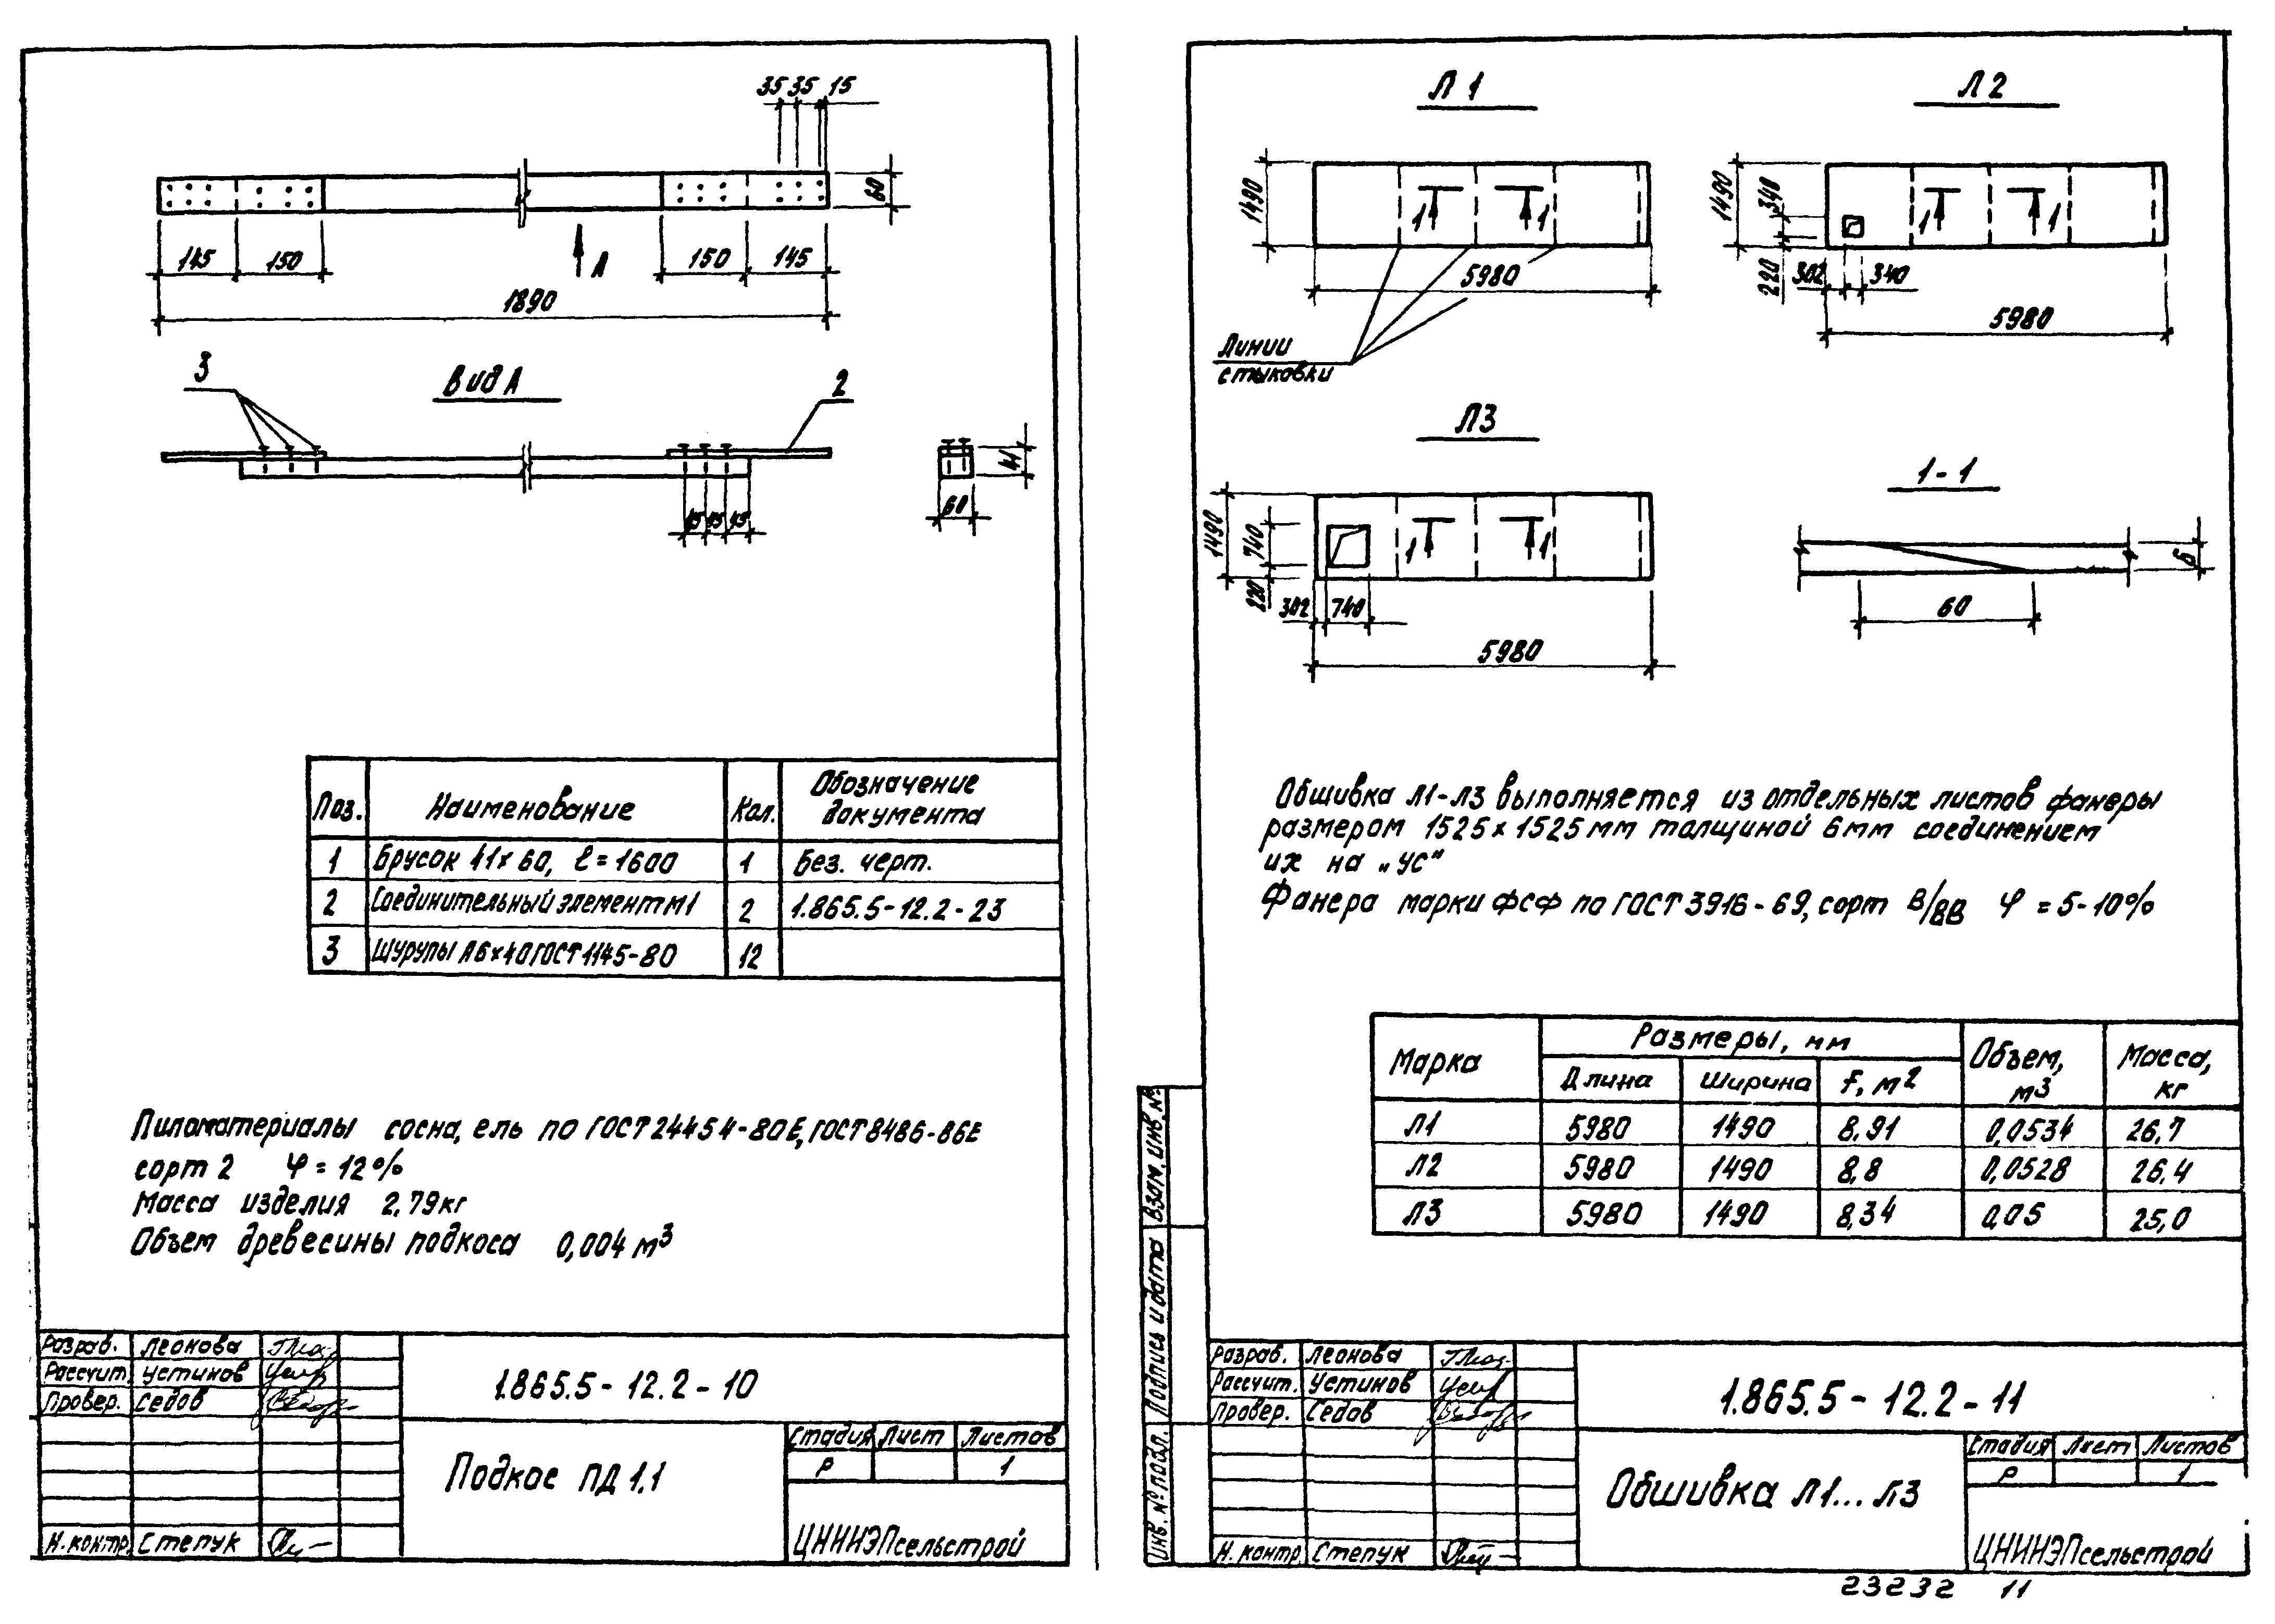 35 35 15
60
145 150 150 145
А
1890
3 Вид А 2
45 45 45
60
41
Поз. Наименование Кол. Обозначение документа
1 Брусок 41×60, ℓ=1600 1 Без. черт.
2 Соединительный элемент М1 2 1.865.5-12.2-23
3 Шурупы А6×40 ГОСТ 1145-80 12
Пиломатериалы сосна, ель по ГОСТ 24454-80Е, ГОСТ 8486-86Е
сорт 2 φ=12%
Масса изделия 2,79кг
Объем древесины подкоса 0,004 м³
Разраб. Леонова
Рассчит. Устинов
Провер. Седов
Н.контр. Степук
1.865.5-12.2-10
Подкос ПД 1.1
Стадия Лист Листов
Р 1
ЦНИИЭПсельстрой
Л 1
1490
1 1
5980
Линии
стыковки
Л 2
1490
340
220
1 1
302 340
5980
Л3
1490
740
220
1 1
302 740
5980
1-1
6
60
Обшивка Л1-Л3 выполняется из отдельных листов фанеры
размером 1525×1525мм толщиной 6мм соединением
их на „ус"
Фанера марки ФСФ по ГОСТ 3916-69, сорт В/ВВ φ=5-10%
Марка Размеры, мм Объем, м³ Масса, кг
Длина Ширина F, м²
Л1 5980 1490 8,91 0,0534 26,7
Л2 5980 1490 8,8 0,0528 26,4
Л3 5980 1490 8,34 0,05 25,0
Взам. инв. №
Подпись и дата
Инв. № подл.
Разраб. Леонова
Рассчит. Устинов
Провер. Седов
Н. контр Степук
1.865.5-12.2-11
Обшивка Л1...Л3
Стадия Лист Листов
Р 1
ЦНИИЭПсельстрой
23232 11